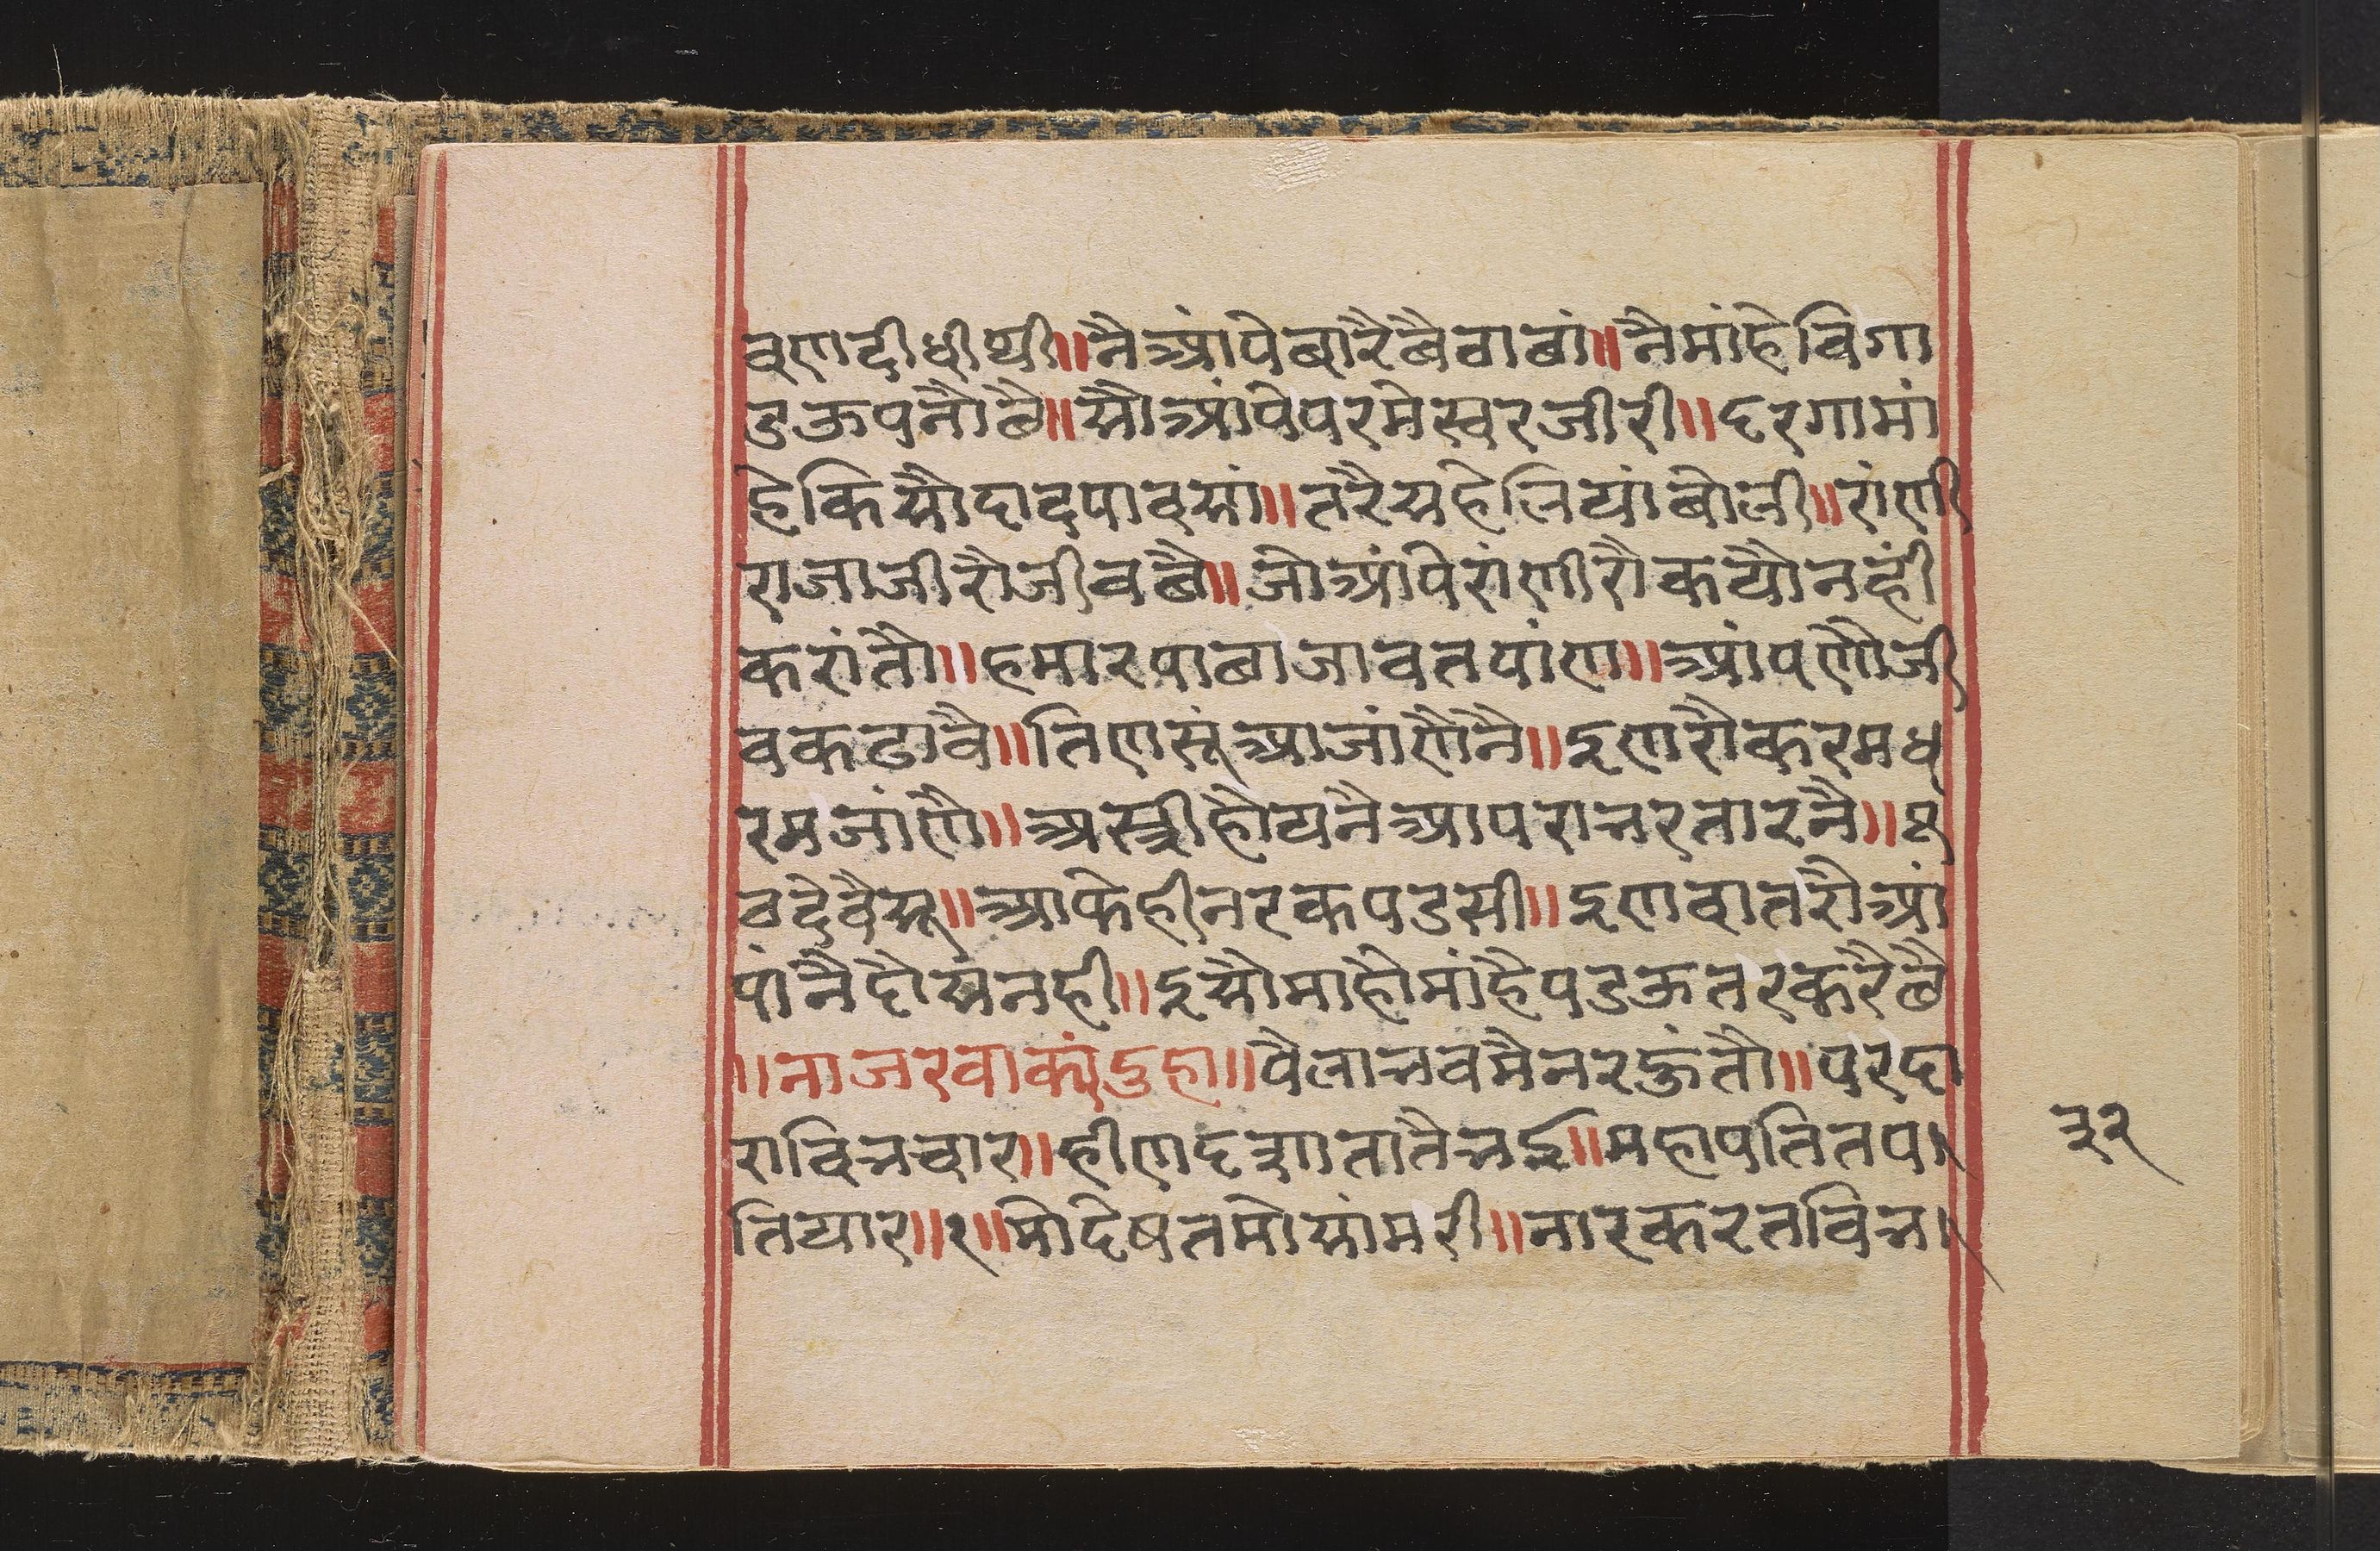 वणदीधीथी॥नैआंपेबारैछैवाबां॥नैमांहेविगा
डऊपनौछै॥सौआंपेपरमेस्वरजीरी॥दरगामां
हेकिसौदादपावसां॥तरैसहेलियांबोली॥रांणी
राजाजीरौजीवछै॥जोआंपेरांणीरौकयौनहीं
करांतौ॥हमारषाबाजावतषांण॥आंपणौजी
वकढावै॥तिणसूंआजांणैनै॥इणरौकरमध
रमजांणै॥अस्त्रीहोयनैआपराभरतारनै॥
वदेवैसू॥आफेहीनरकपडसी॥इणवातरौआं
पांनैदोसनही॥इसौमाहोमांहैपडऊतरकरैछै
॥नाजरवाक्यंदुहा॥पैलाभवमैनरहुंतौ॥परदा
राविभचार॥हीणदशातातैभई॥महापतितपा
तियार॥१॥मोदेषतमोसांमरी॥नारकरतविभा
३२